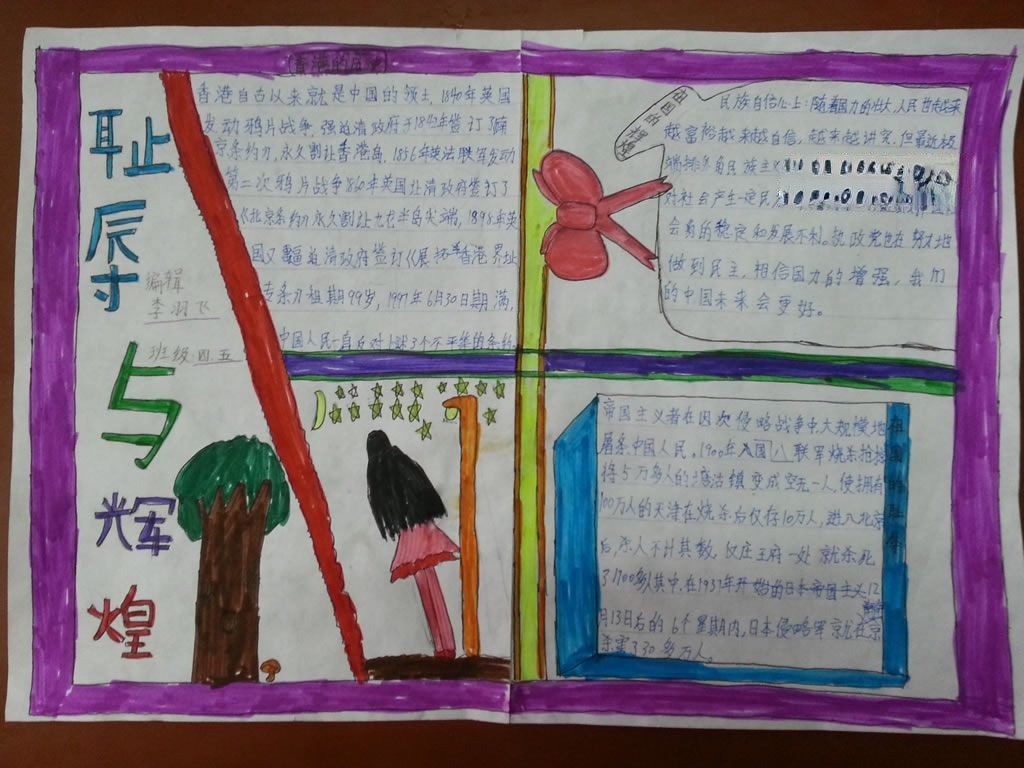 耻辱与辉煌
编辑
李羽飞
班级:四.五
香港的历史
香港自古以来就是中国的领土,1840年英国
发动鸦片战争,强迫清政府于1842年签订了《南
京条约》,永久割让香港岛,1856年英法联军发动
第二次鸦片战争1860年英国让清政府签订了
《北京条约》永久割让九龙半岛尖端,1898年英
国又逼迫清政府签订《展拓香港界址
专条》租期99岁,1997年6月30日期满,
中国人民一直反对上述3个不平等的条约
祖国的辉煌
民族自信心上:随着国力的壮大,人民
越富裕越来越自信,越来越讲究,但最近极
端排外自民族主义
对社会产生一定
会的稳定和发展不利。执政党也在努力地
做到民主,相信国力的增强,我们
的中国未来会更好。
祖国的耻辱
帝国主义者在因次侵略战争中大规模地
屠杀中国人民,1900年入国八联军烧杀抢掠
将5万多人的塘沽镇变成空无一人,使拥有
100万人的天津在烧杀后仅存10万人,进入北京
后,杀人不计其数,仅庄王府一处就杀死
了1700多人其中,在1937年开始的日本帝国主义12
月13日后的6个星期内,日本侵略军就在南京
杀害330多万人。